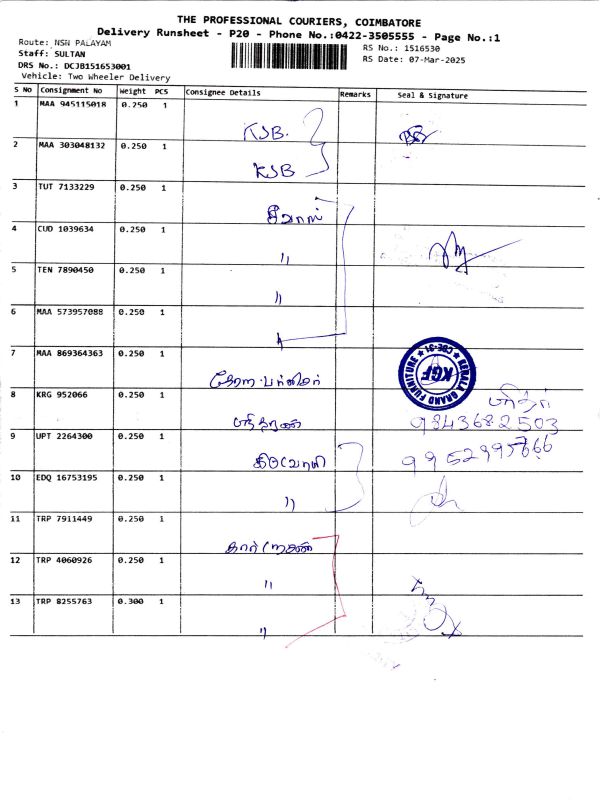 THE PROFESSIONAL COURIERS, COIMBATORE
Delivery Runsheet - P20 - Phone No.:0422-3505555 - Page No.:1
Route: NSN PALAYAM
RS No.: 1516530
Staff: SULTAN
RS Date: 07-Mar-2025
DRS No.: DCJB151653001
Vehicle: Two Wheeler Delivery
S No Consignment No Weight PCS Consignee Details Remarks Seal & Signature
1 MAA 945115018 0.250 1
KSB.
2 MAA 303048132 0.250 1
KSB
3 TUT 7133229 0.250 1
4 CUD 1039634 0.250 1
"
5 TEN 7890450 0.250 1
"
6 MAA 573957088 0.250 1
7 MAA 869364363 0.250 1
KERALA GRAND FURNITURE
KGF
CBE-31
8 KRG 952066 0.250 1
9843682503
9 UPT 2264300 0.250 1
10 EDQ 16753195 0.250 1
"
11 TRP 7911449 0.250 1
12 TRP 4060926 0.250 1
"
13 TRP 8255763 0.300 1
"